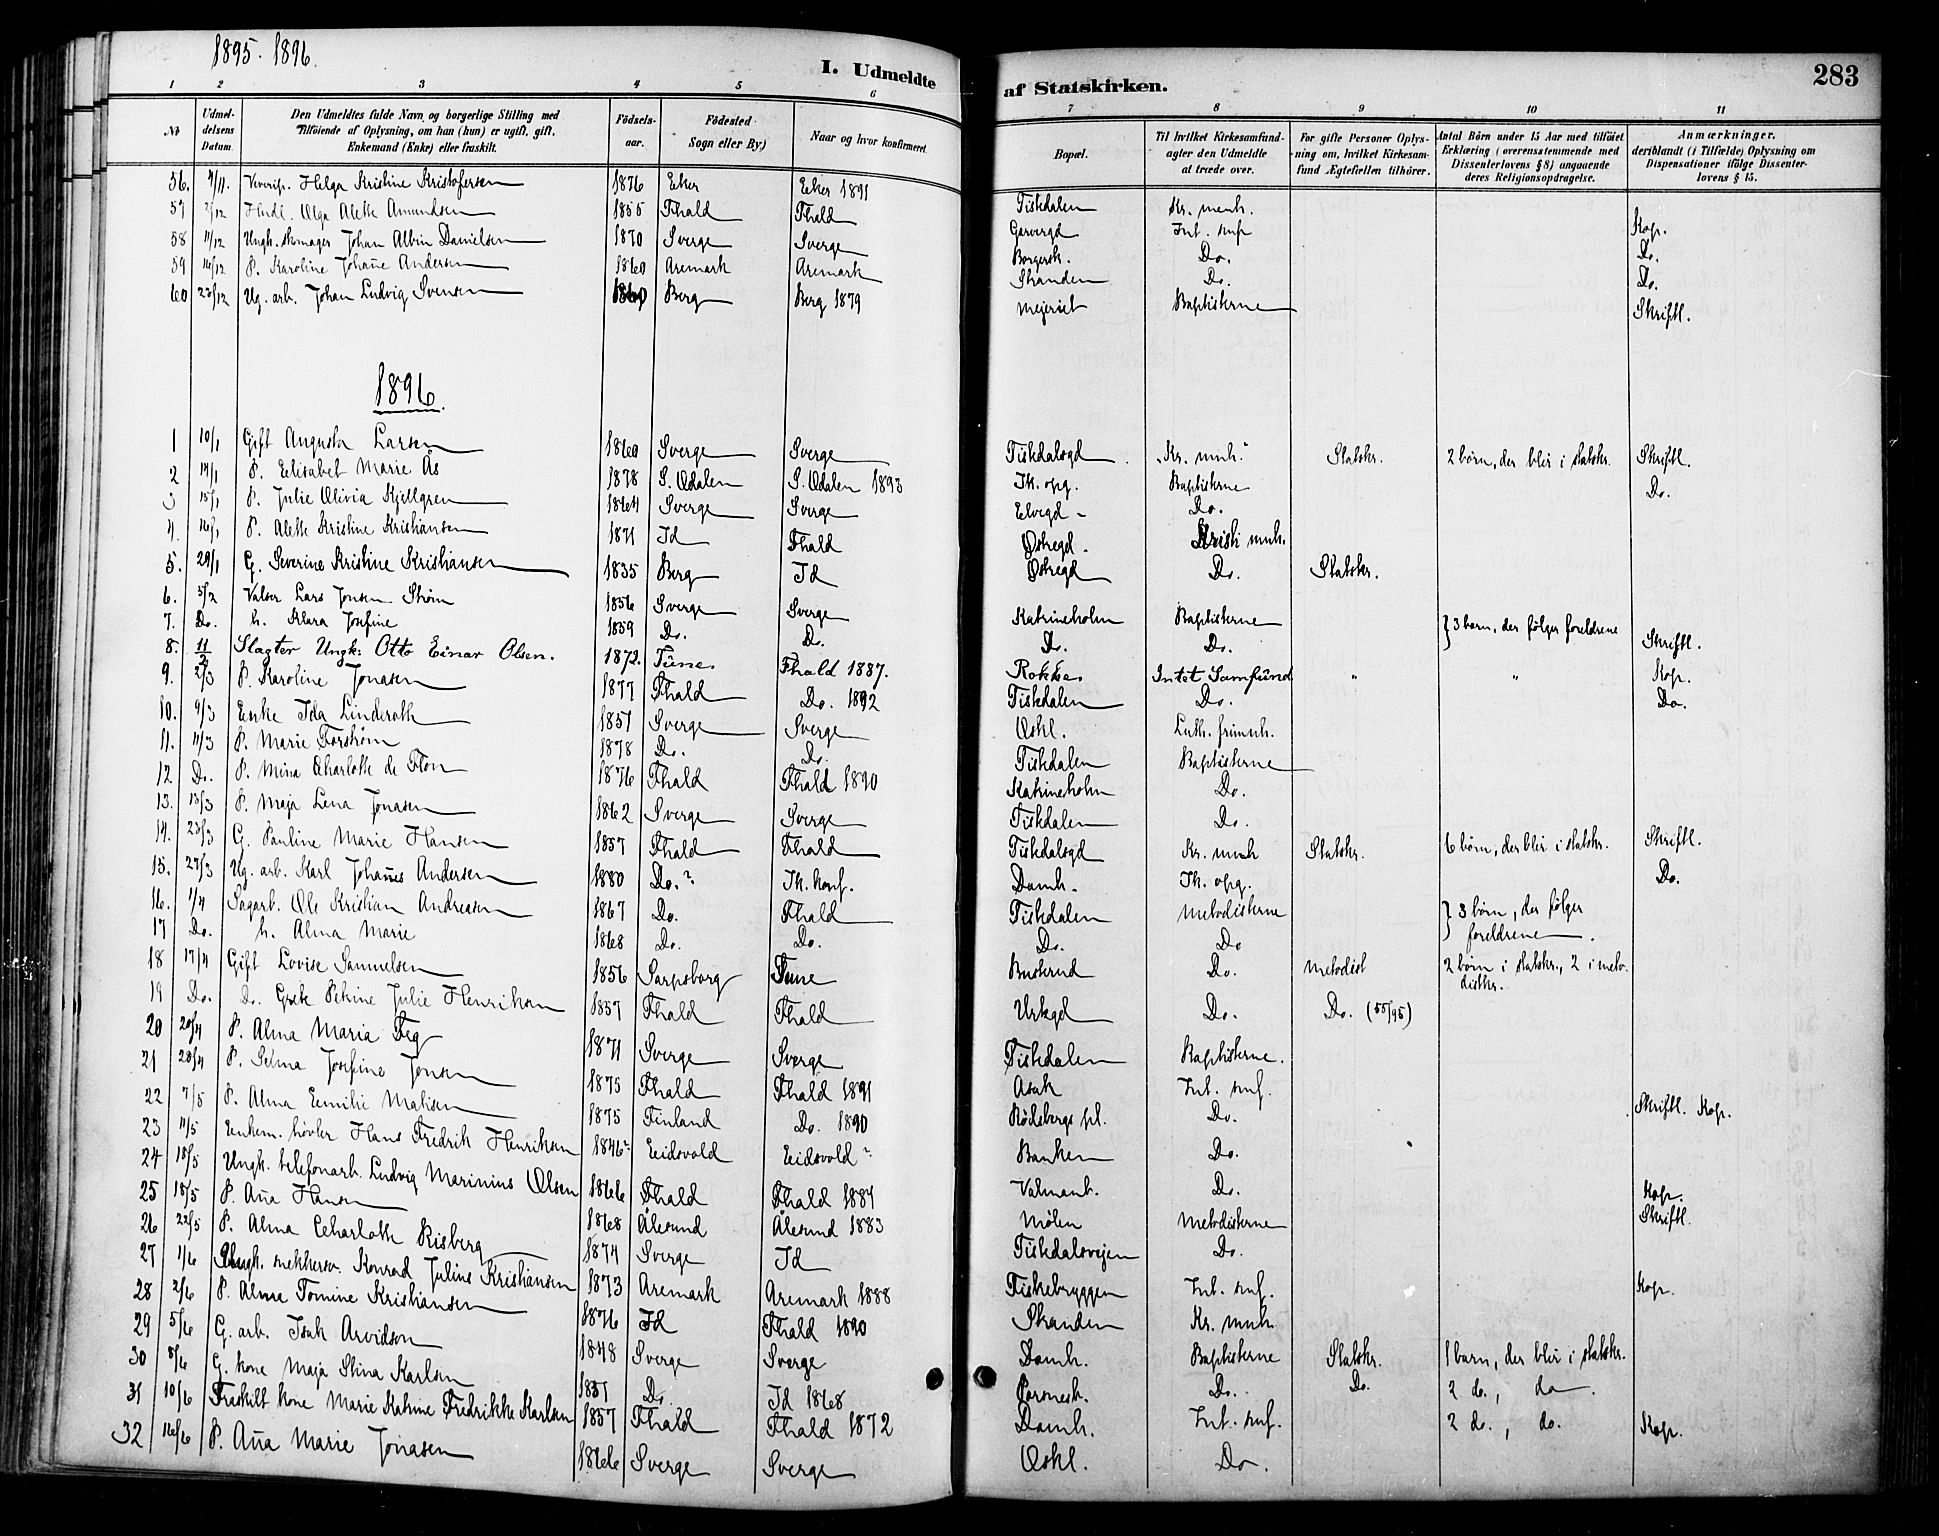 1895. 1896.
I. Udmeldte af Statskirken. 283
1 2 3 4 5 6 7 8 9 10 11
№ Udmeldelsens Datum. Den Udmeldtes fulde Navn og borgerlige Stilling med Tilføiende af Oplysning, om han (hun) er ugift, gift, Enkemand (Enke) eller fraskilt. Fødselsaar. Fødested Sogn eller By.) Naar og hvor konfirmeret. Bopæl. Til hvilket Kirkesamfund agter den Udmeldte at træde over. For gifte Personer Oplysning om, hvilket Kirkesamfund Ægtefællen tilhører. Antal Børn under 15 Aar med tilføiet Erklæring (overensstemmende med Dissenterlovens § 8) angaaende deres Religionsopdragelse. Anmærkninger, deriblandt (i Tilfælde) Oplysning om Dispensationer ifølge Dissenterlovens § 15.
56. 4/11. Helga Kristine Kristofersen 1876 Eker Eker 1891 Tistedalen Kr. menh.
57 2/12 Olga Alette Amundsen 1855 Fhald Fhald Garvergd Int. smf Kop.
58 11/12 Ungk. skomager Johan Albin Danielsen 1870 Sverge Sverge Borgersk. Do. Do.
59 16/12 P. Karoline Johañe Andersen 1860 Aremark Aremark Skanden Do. Do.
60 23/12 Ug. arb. Johan Ludvig Svensen Berg Berg 1879 Mejeriet Baptisterne Skriftl.
1896.
1 10/1 Gift Augusta Larsen 1860 Sverge Sverge Tistedalsgd „Kr. mnh." Statskr. 2 børn, der blir i statskr. Skriftl.
2 14/1 P. Elisabet Marie Ås 1878 S. Odalen S. Odalen 1893 Ik. opg. Baptisterne Do.
3 15/1 P. Julie Olivia Kjellgren 1864 Sverge Sverge Elvegd Do.
4. 16/1 P. Alette Kristine Kristiansen 1871 Id Fhald Østregd. Kristi mnh.
5. 29/1 G. Severine Kristine Kristiansen 1835 Berg Id Østregd Do. Statskr.
6. 5/2 Valser Lars Jonsen Strøm 1856 Sverge Sverge Katrineholm Baptisterne } 3 barn, der følger foreldrene
7. Do. h. Klara Josefine 1859 Do. Do. Do. Do. Skriftl.
8. 11/2 Slagter Ungk: Otto Einar Olsen. 1872. Tune. Fhald 1887. Rokke. Intet Samfund " " Kop.
9. 2/3 P. Karoline Jonasen 1877 Fhald Do. 1892 Tistedalen Do. Do.
10. 9/3 Enke Ida Linderoth 1857 Sverge Sverge Oskl. Luth. frimnh.
11. 11/3 P. Marie Forstrøm 1878 Do. Do. Tistedalen Baptisterne
12. Do. P. Mina Charlotte de Flon 1876 Fhald Fhald 1890 Katrineholm Do.
13. 13/3 P. Maja Lena Jonasen 1862 Sverge Sverge Tistedalen Do.
14. 23/3 G. Pauline Marie Hansen 1857 Fhald Fhald Tistedalsgd Kr. mnh Statskr. 6 børn, der blir i statskr. Skriftl.
15. 27/3 Ug. arb. Karl Johañes Andersen 1880 Do.? Ik. konf. Damh. Ik. opg. Do.
16. 1/4 Sagarb. Ole Kristian Andreasen 1867 Do. Fhald Tistedalen Metodisterne } 3 børn, der følger
17 Do. h. Alma Marie 1868 Do. Do. Do. Do foreldrene.
18 17/4 Gift Lovise Samuelsen 1856 Sarpsborg Tune Buskrud Do. Metodist 2 børn i statskr., 2 i metodistkr.
19 Do. Do. Grete Petrine Julie Henriksen 1857 Fhald Fhald Urtegd Do. Do. (55/95)
20 20/4 P. Alma Maria Teg 1871 Sverge Sverge Tistedalen Baptisterne.
21 28/4 P. Selma Josefine Jonsen 1875 Fhald Fhald 1891 Asak Int. smf.
22 7/5 P. Alma Emilie Matisen 1875 Finland Do. 1890 Rødsbergs pl. Do. Skriftl. Kop.
23 11/5 Enkem. høvler Hans Fredrik Henriksen 1846? Eidsvold Eidsvold? Banken Do.
24 18/5 Ungk. telefonarb. Ludvig Marinius Olsen 1866 Fhald Fhald 1881 Valmanb. Do. Kop.
25 18/5 P. Aña Hansen 1868 Ålesund Ålesund 1883 Mølen Metodisterne Skriftl.
26 22/5 P. Alma Charlotte Risberg 1874 Sverge Id Tistedalsvejen Do.
27 1/6 Ungk. snekkersv. Konrad Julius Kristiansen 1873 Aremark Aremark 1888 Fiskebryggen Int. smf. Kop.
28 2/6 P. Alma Tomine Kristiansen 1876 Id Fhald 1890 Skanden Kr. mnh.
29 5/6 G. arb. Isak Arvidson 1848 Sverge Sverge Damh. Baptisterne Statskr. 1 barn, der blir i statskr.
30 8/6 G. kone Maja Stina Karlsen Do. Id 1868 Do. Do. 2 do., do.
31 10/6 Fraskilt kone Marie Katrine Fredrikke Karlsen 1857 Fhald Fhald 1872 Damh. Int. smf. 2 do., do. Kop.
32 16/6 P. Aña Marie Jonasen 1866 Sverge Sverge Oskl. Do.